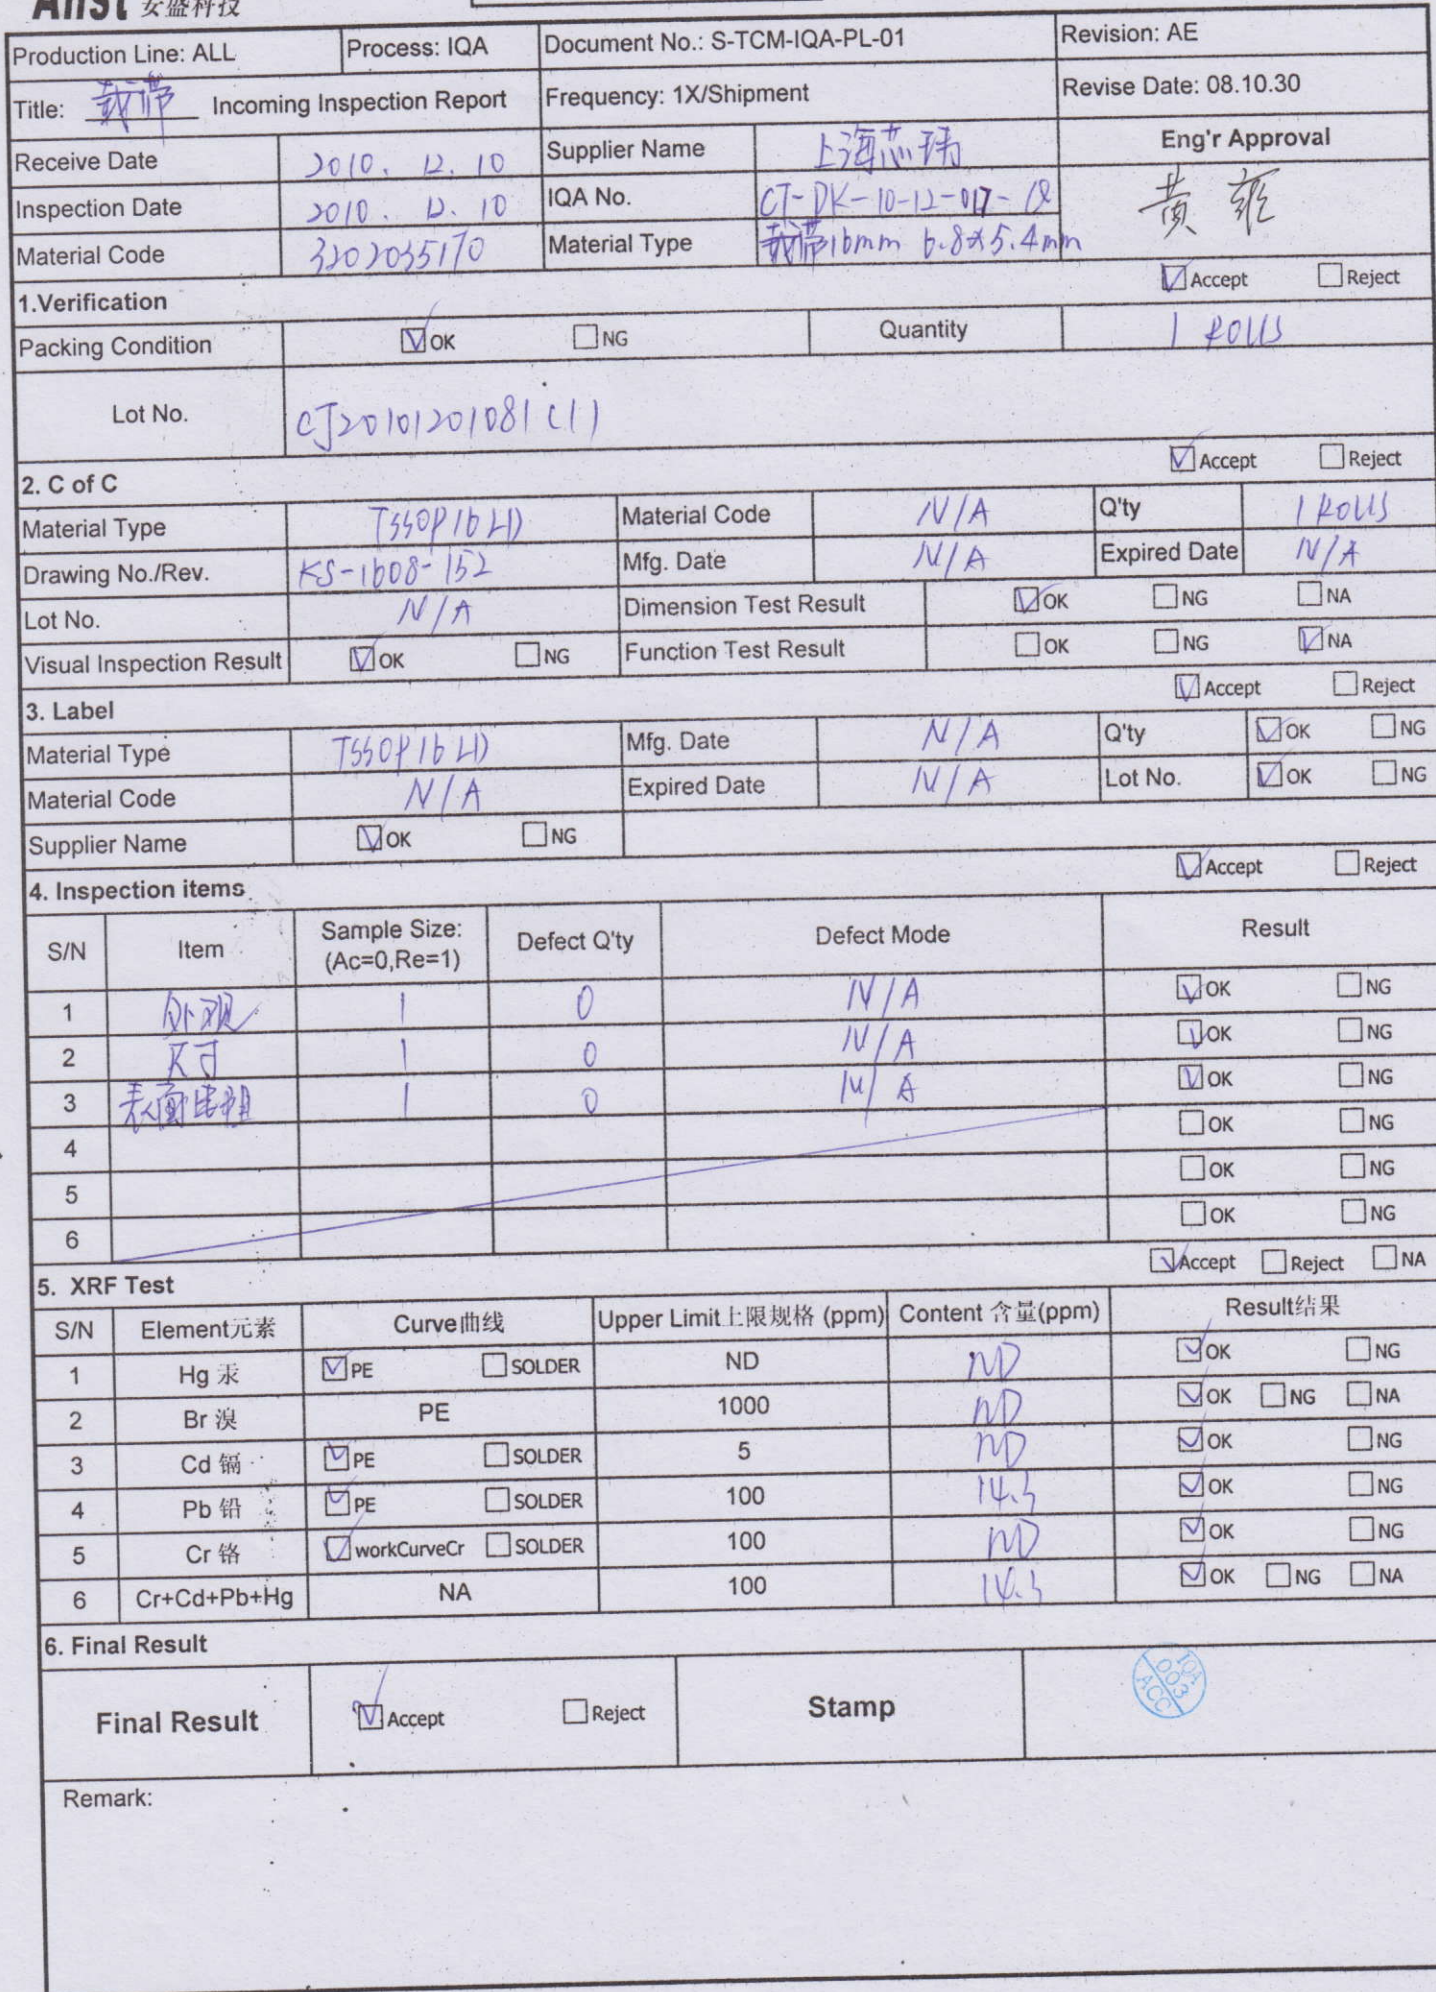 安盛科技
Production Line: ALL Process: IQA Document No.: S-TCM-IQA-PL-01 Revision: AE
Title: 载带 Incoming Inspection Report Frequency: 1X/Shipment Revise Date: 08.10.30
Receive Date 2010. 12. 10 Supplier Name 上海芯玮 Eng'r Approval
Inspection Date 2010. 12. 10 IQA No. CT-DK-10-12-017- 黄
Material Code 3202035170 Material Type 载带16mm 6.8*5.4mm
1.Verification Accept Reject
Packing Condition OK NG Quantity 1 ROLLS
Lot No. CJ20101201081(1)
2. C of C Accept Reject
Material Type TSSOP16LD Material Code N/A Q'ty 1 ROLLS
Drawing No./Rev. KS-1608-152 Mfg. Date N/A Expired Date N/A
Lot No. N/A Dimension Test Result OK NG NA
Visual Inspection Result OK NG Function Test Result OK NG NA
3. Label Accept Reject
Material Type TSSOP16LD Mfg. Date N/A Q'ty OK NG
Material Code N/A Expired Date N/A Lot No. OK NG
Supplier Name OK NG
4. Inspection items Accept Reject
S/N Item Sample Size: Defect Q'ty Defect Mode Result
(Ac=0,Re=1)
1 外观 1 0 N/A OK NG
2 尺寸 1 0 N/A OK NG
3 表面电阻 1 0 N/A OK NG
4 OK NG
5 OK NG
6 OK NG
5. XRF Test Accept Reject NA
S/N Element元素 Curve曲线 Upper Limit上限规格 (ppm) Content 含量(ppm) Result结果
1 Hg 汞 PE SOLDER ND ND OK NG
2 Br 溴 PE 1000 ND OK NG NA
3 Cd 镉 PE SOLDER 5 ND OK NG
4 Pb 铅 PE SOLDER 100 14.3 OK NG
5 Cr 铬 workCurveCr SOLDER 100 ND OK NG
6 Cr+Cd+Pb+Hg NA 100 14.3 OK NG NA
6. Final Result
Final Result Accept Reject Stamp IQA 003 ACC
Remark: